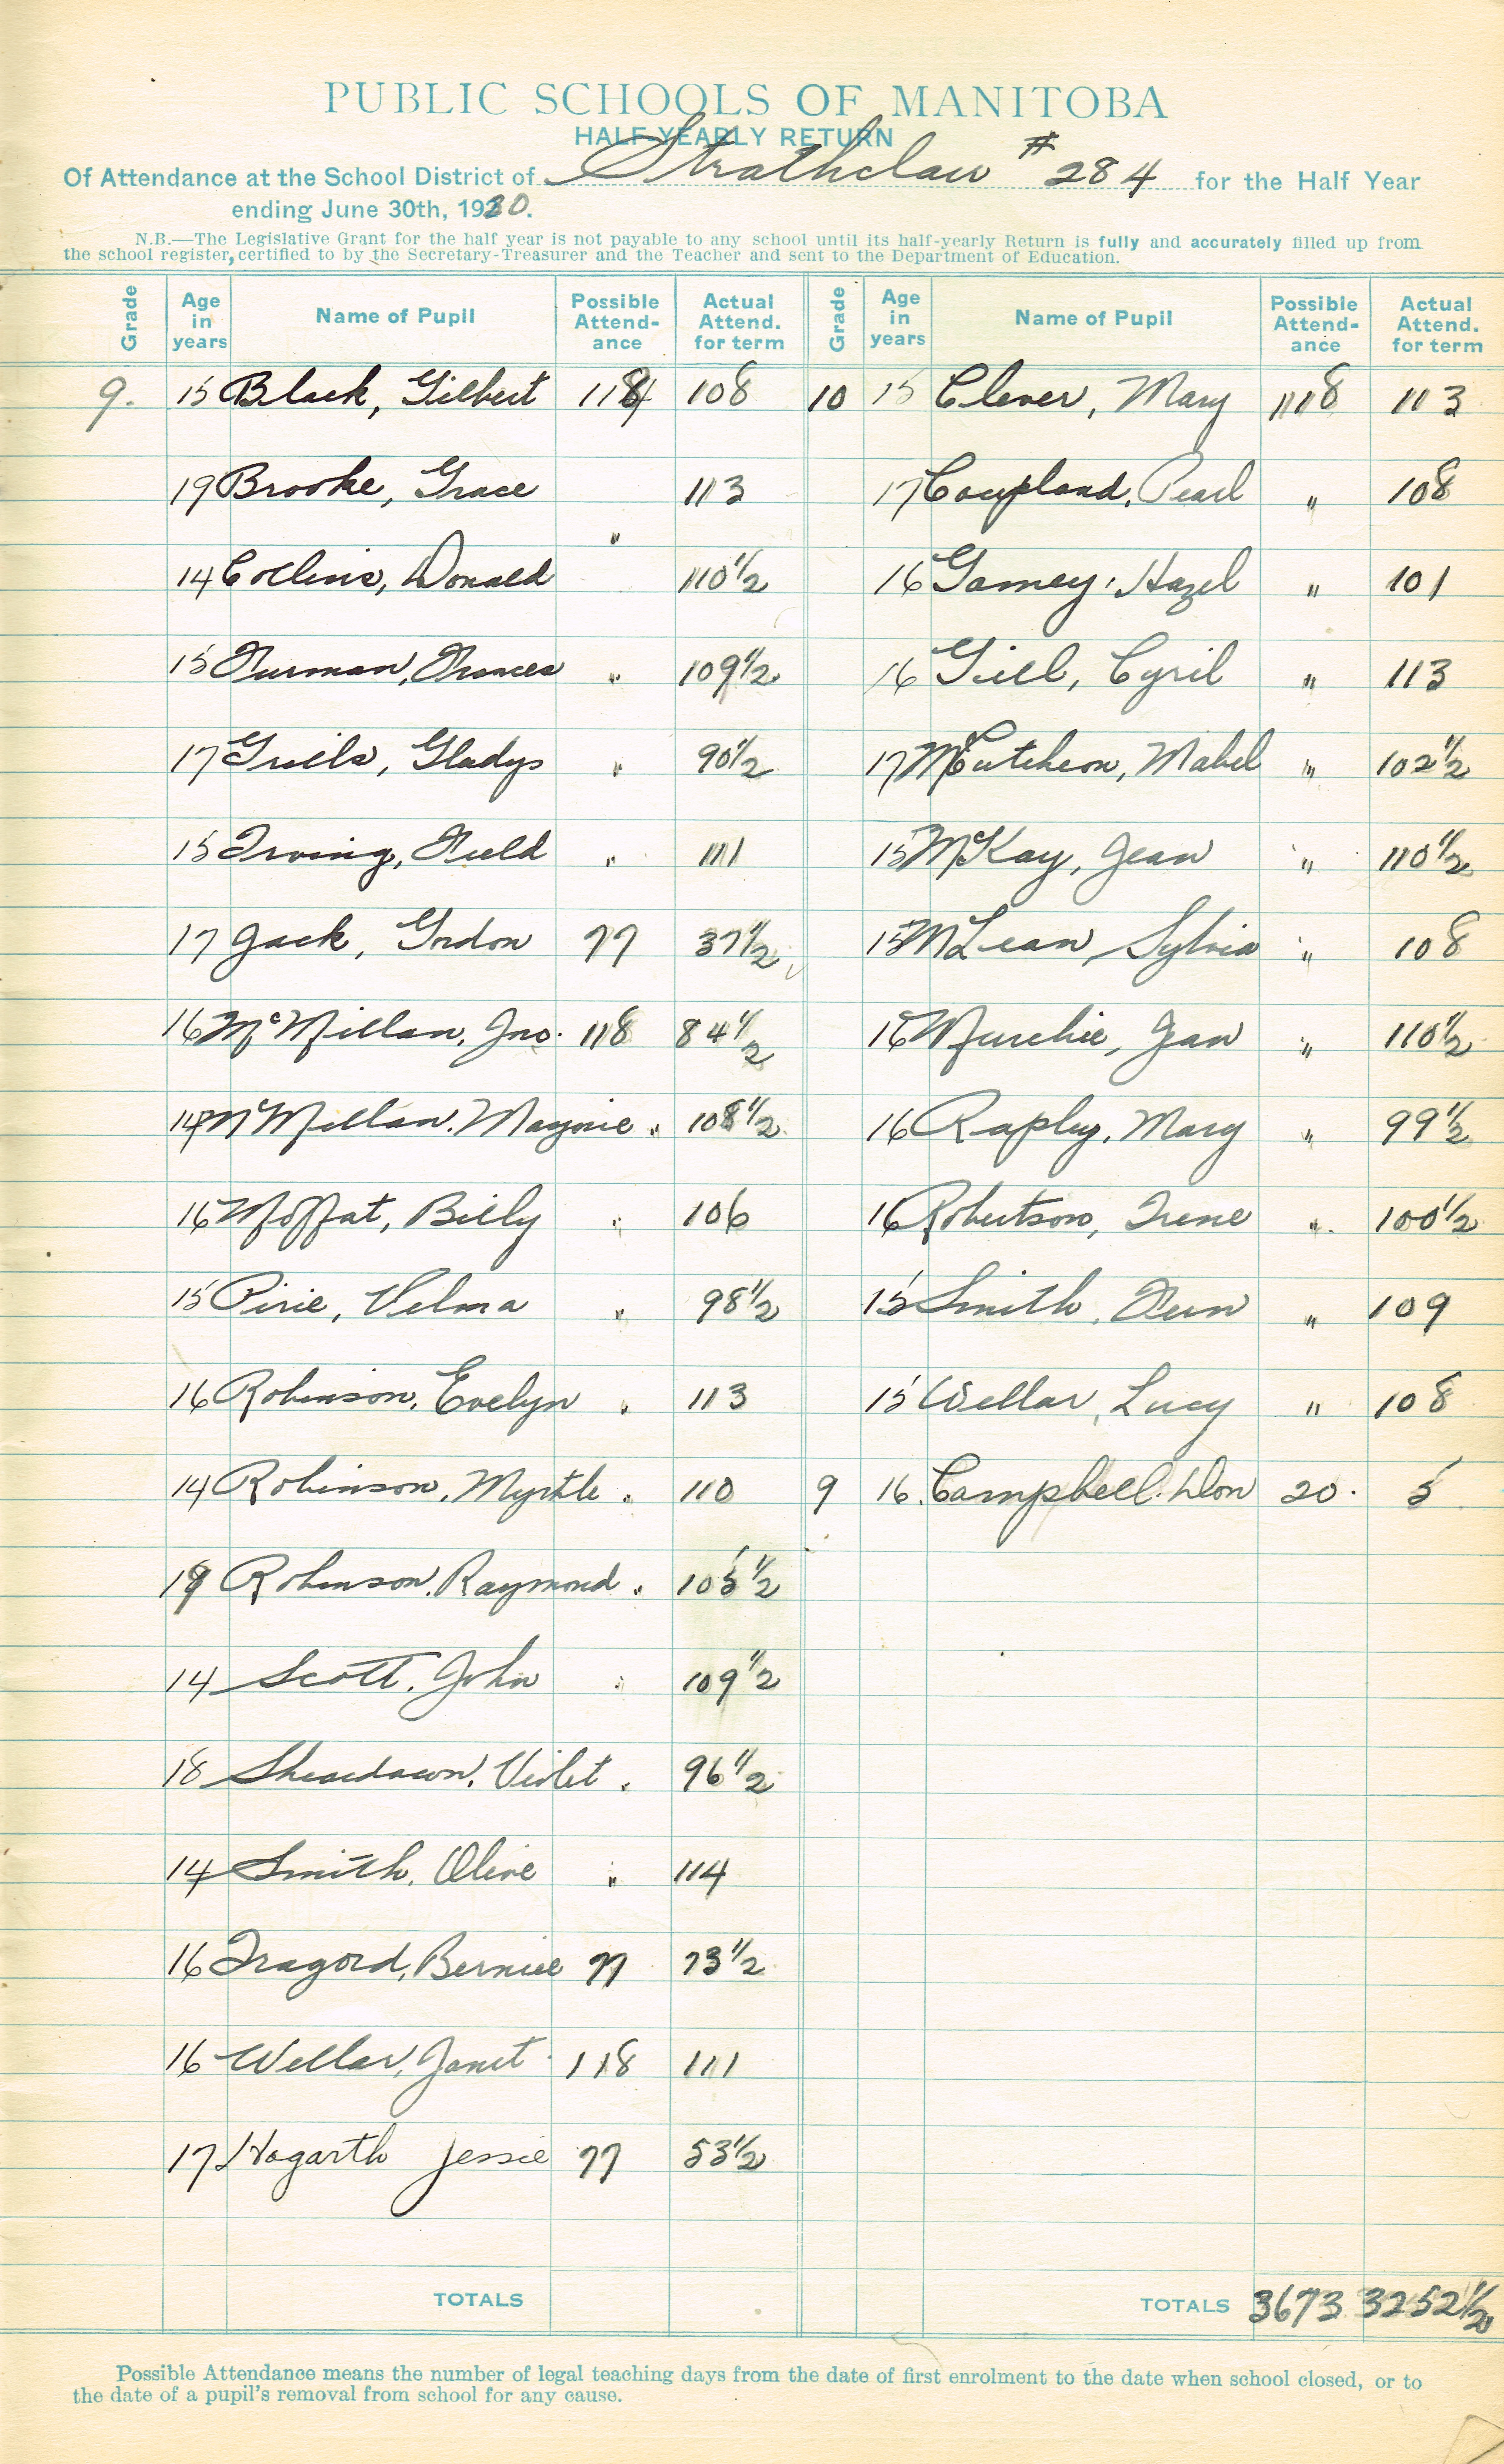 PUBLIC SCHOOLS OF MANITOBA
HALF-YEARLY RETURN
Of Attendance at the School District of Strathclair #284 for the Half Year
ending June 30th, 1930.
N.B.—The Legislative Grant for the half year is not payable to any school until its half-yearly Return is fully and accurately filled up from
the school register, certified to by the Secretary-Treasurer and the Teacher and sent to the Department of Education.
Grade Age in years Name of Pupil Possible Attend-ance Actual Attend. for term
9. 15 Black, Gilbert 118 108
19 Brooke, Grace " 113
14 Collins, Donald 110 1/2
15 Furman, Frances " 109 1/2
17 Grills, Gladys " 90 1/2
15 Irving, Field " 111
17 Jack, Gordon 77 37 1/2
16 McMillan, Jno. 118 84 1/2
14 McMillan, Marjorie " 108 1/2
16 Moffat, Billy " 106
15 Pirie, Velma " 98 1/2
16 Robinson, Evelyn " 113
14 Robinson, Myrtle " 110
Robinson, Raymond " 105 1/2
14 Scott, John " 109 1/2
18 Sheardown, Violet " 96 1/2
14 Smith, Olive " 114
16 Tragord, Bernice 77 73 1/2
16 Wellar, Janet 118 111
17 Hogarth Jessie 77 53 1/2
TOTALS
Grade Age in years Name of Pupil Possible Attend-ance Actual Attend. for term
10 15 Clever, Mary 118 113
17 Coupland, Pearl " 108
16 Gamey, Hazel " 101
16 Gill, Cyril " 113
17 McCutcheon, Mabel " 102 1/2
15 McKay, Jean " 110 1/2
15 McLean, Sylvia " 108
16 Murchie, Jean " 110 1/2
16 Rapley, Mary " 99 1/2
16 Robertson, Irene " 100 1/2
15 Smith, Fern " 109
15 Wellar, Lucy " 108
9 16 Campbell, Don 20. 5
TOTALS 3673 3252 1/2
Possible Attendance means the number of legal teaching days from the date of first enrolment to the date when school closed, or to
the date of a pupil's removal from school for any cause.